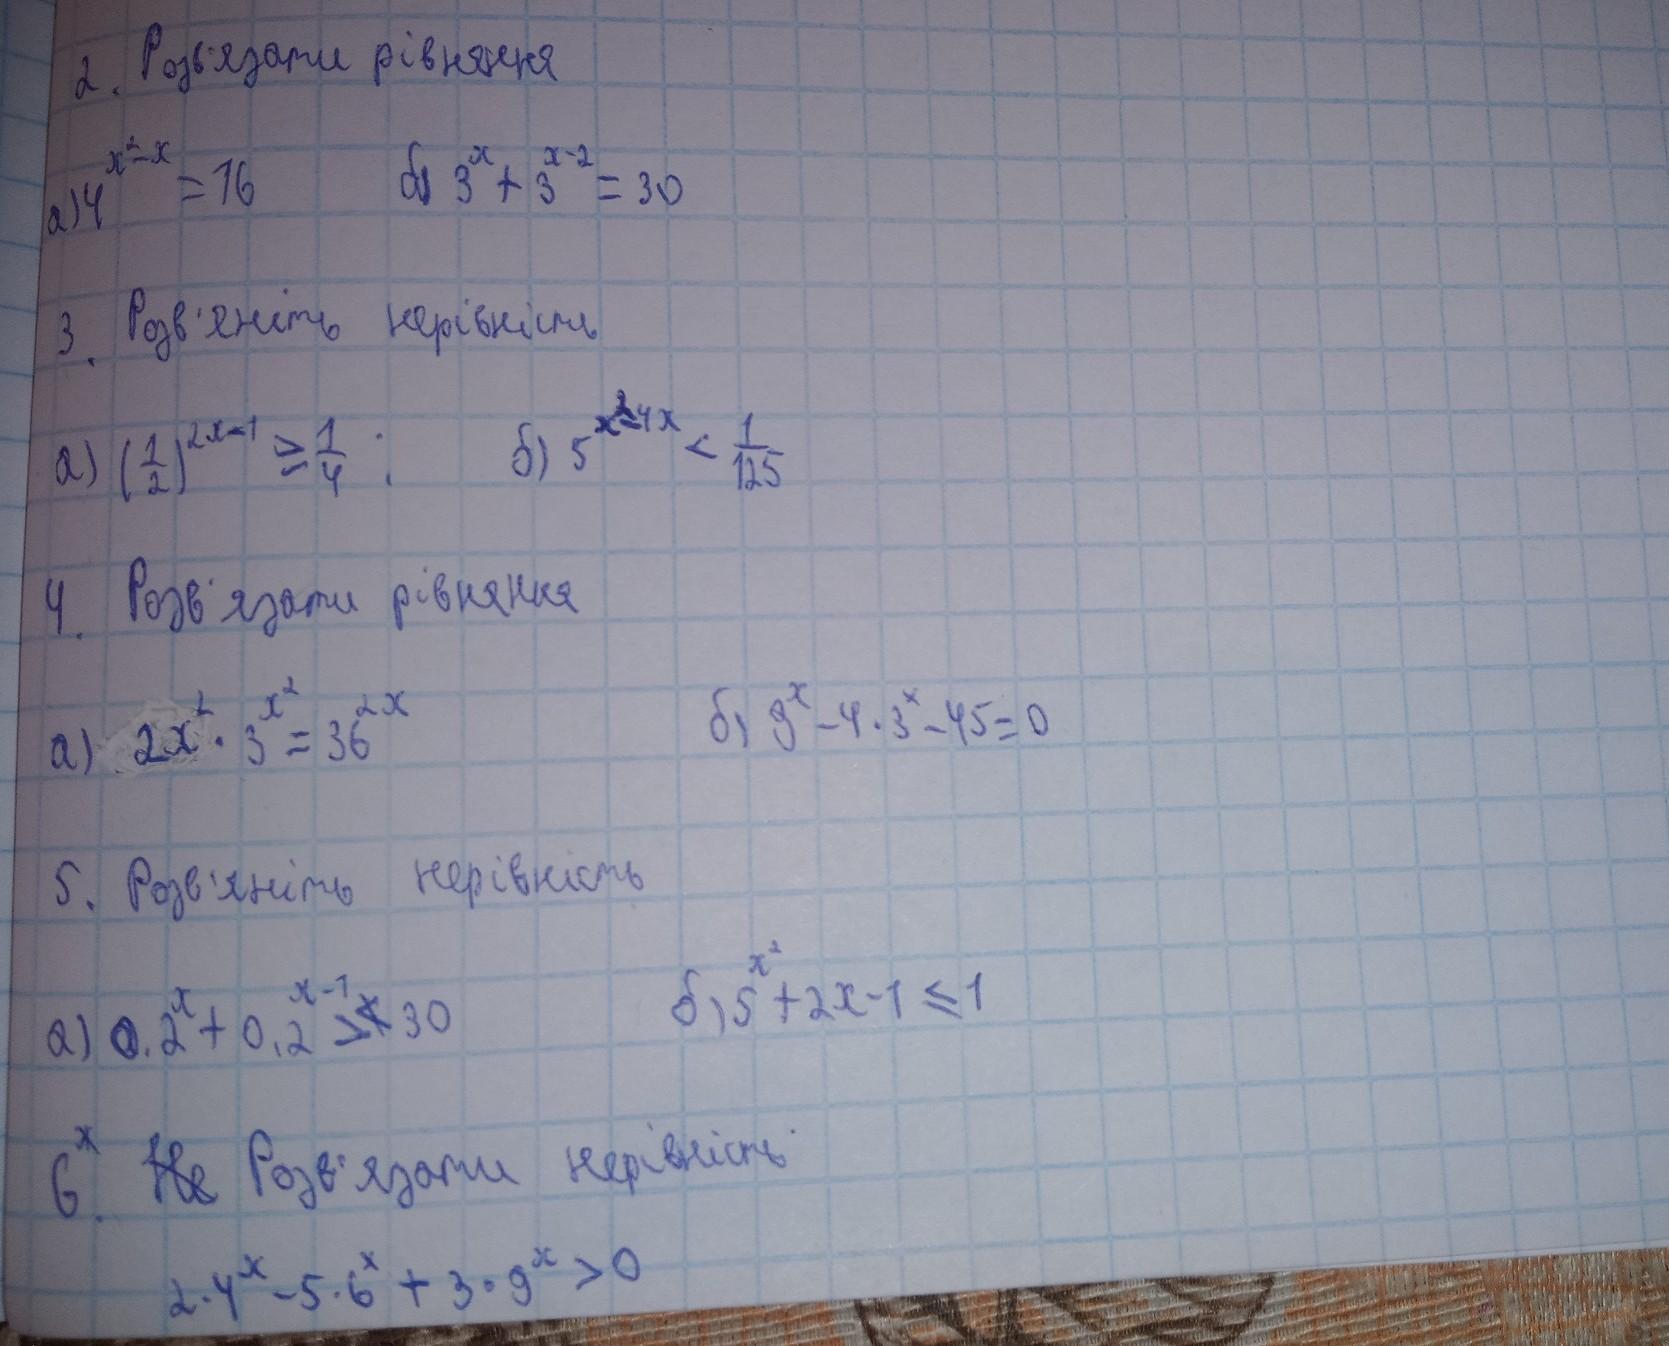 2. Розв'язати рівняння
а) 4^{x²-x} = 16   б) 3^x + 3^{x-2} = 30
3. Розв'яніть нерівність
а) (1/2)^{2x-1} ≥ 1/4 ;   б) 5^{x²-4x} < 1/125
4. Розв'язати рівняння
а) 2x² · 3^{x²} = 36^{2x}   б) 9^x - 4 · 3^x - 45 = 0
5. Розв'яніть нерівність
а) 0,2^x + 0,2^{x-1} > 30   б) 5^{x²} + 2x - 1 ≤ 1
6^x. Розв'язати нерівність
2 · 4^x - 5 · 6^x + 3 · 9^x > 0